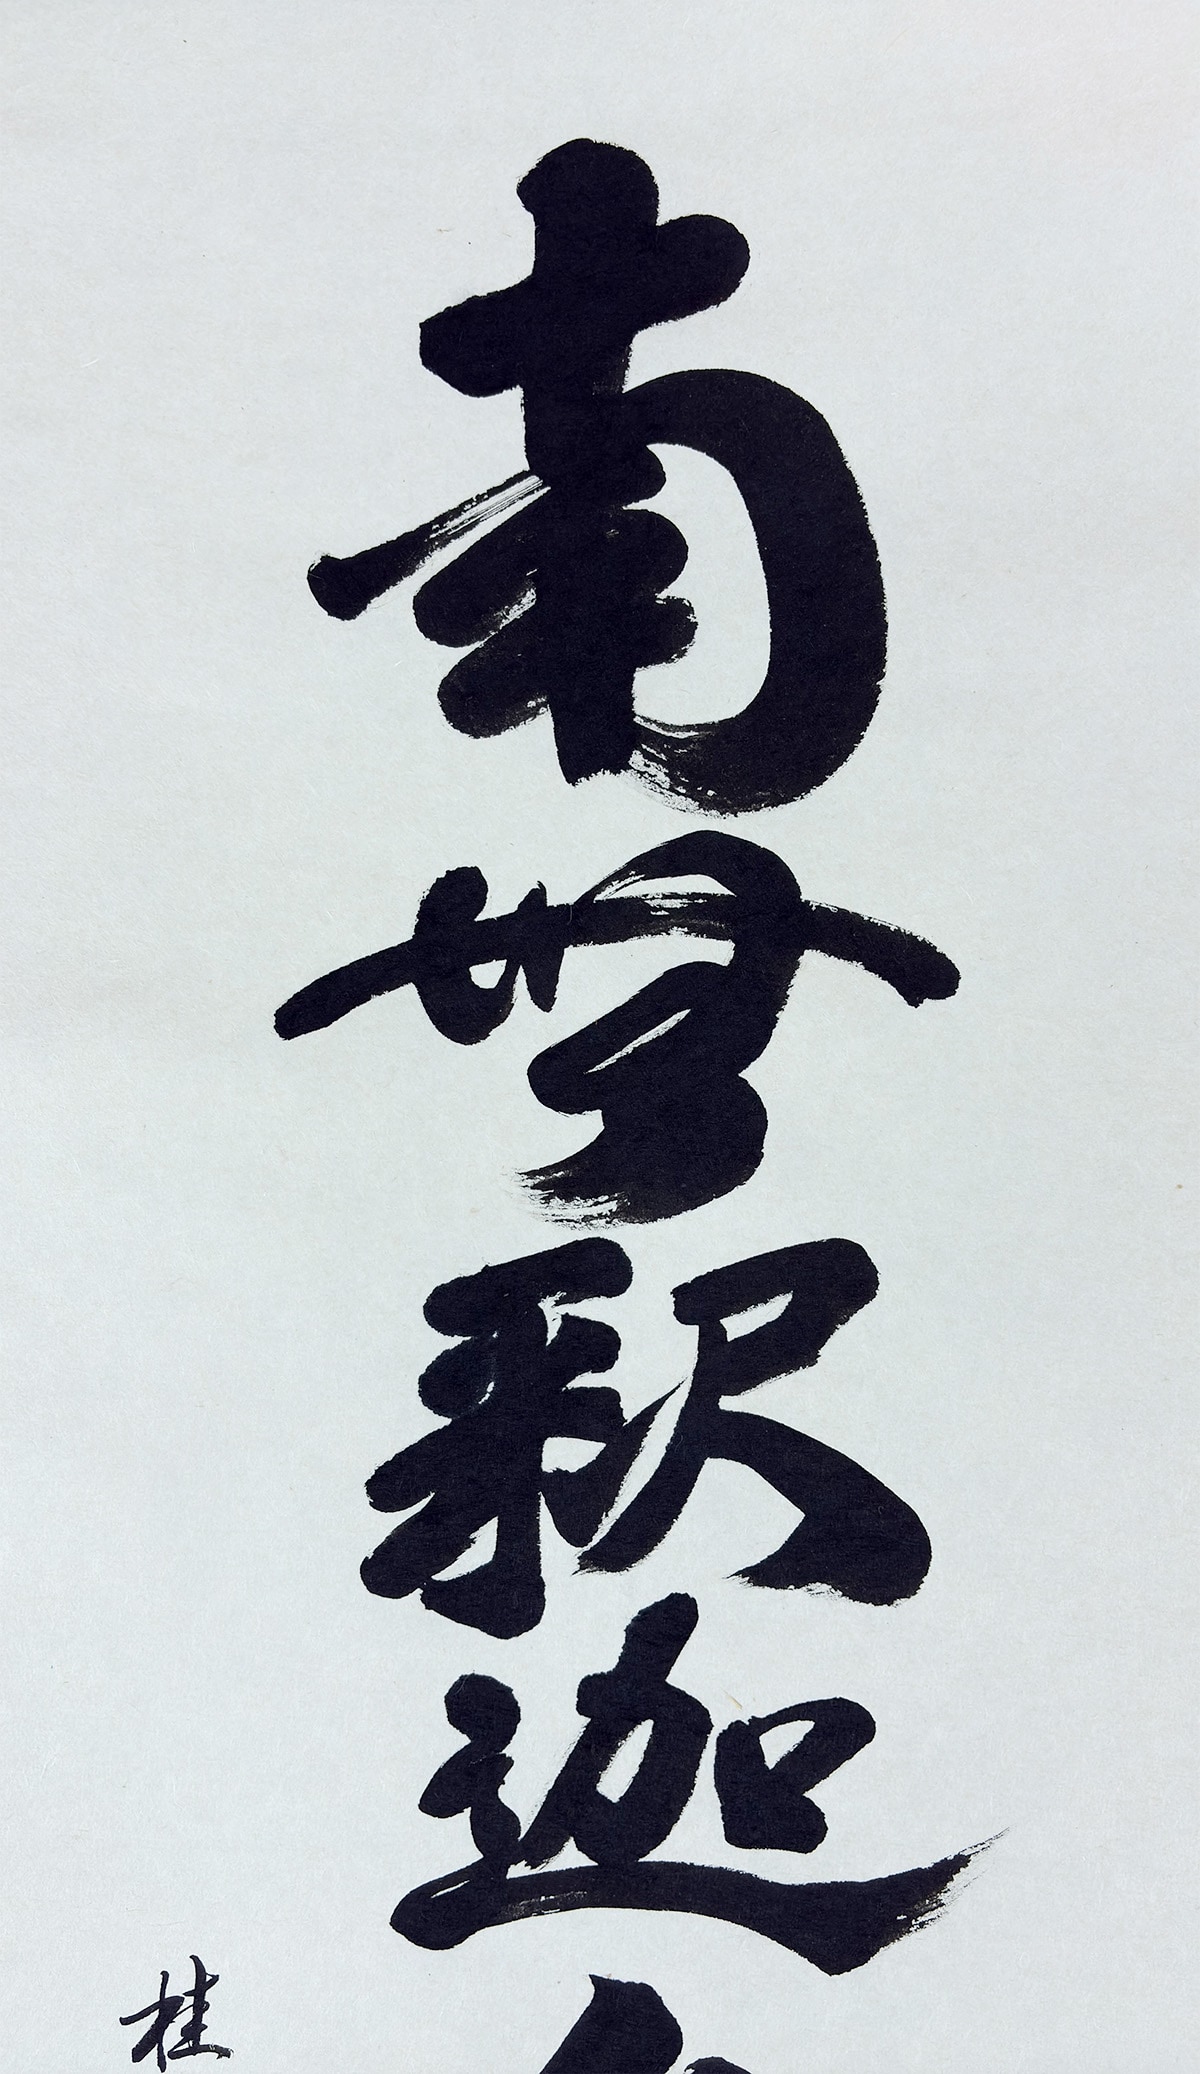 南無釈迦
桂